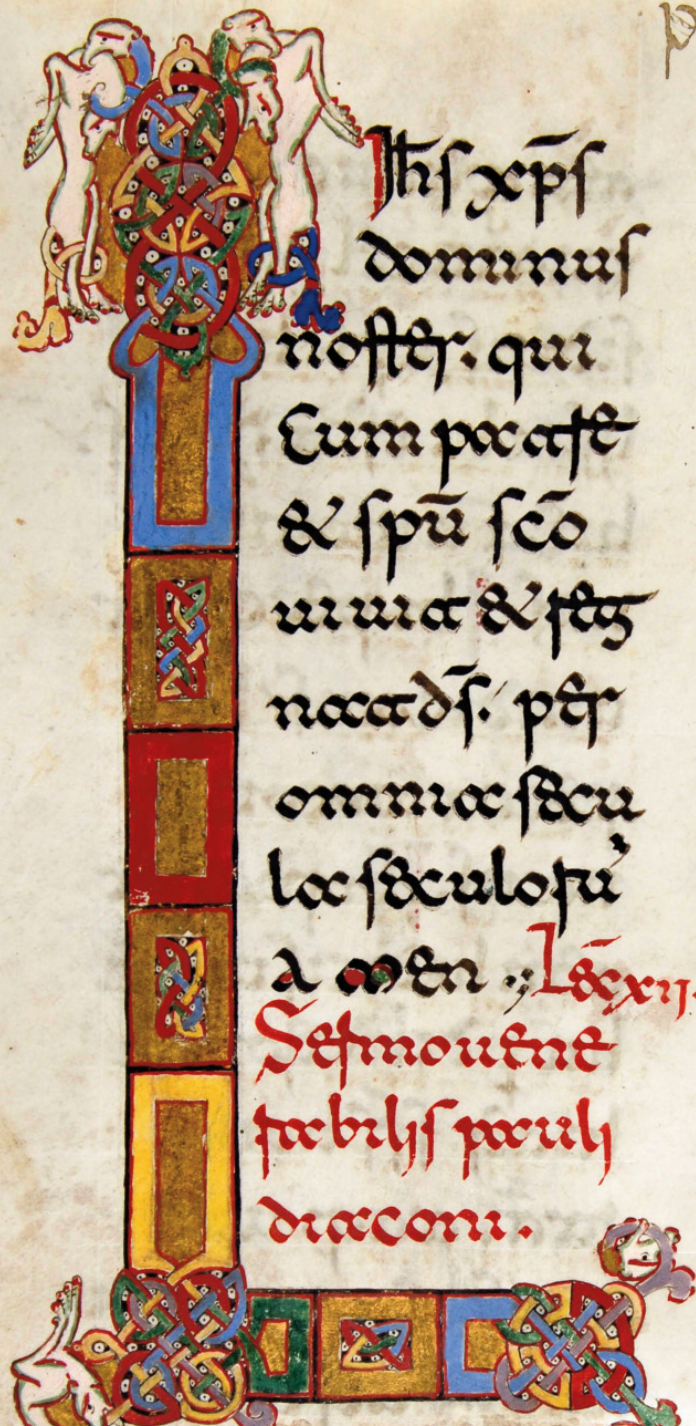 Ihs xp̄s
dominus
noster. qui
Cum patre
& spū scō
uiuit & reg
nat ds̄. per
omnia secu
la seculorū
amen. Lec̄ xii.
Sermo uene
rabilis pauli
diaconi.